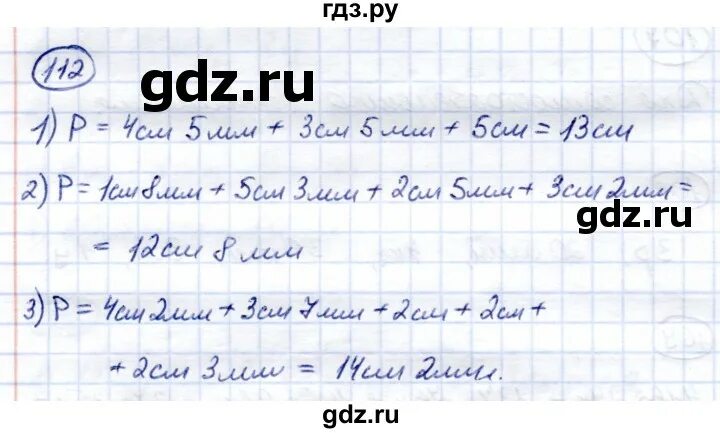 гдз.ру
112
gdz.ru
1) P = 4см 5мм + 3см 5мм + 5см = 13см
2) P = 1см 8мм + 5см 3мм + 2см 5мм + 3см 2мм =
gdz.ru
= 12см 8мм
3) P = 4см 2мм + 3см 7мм + 2см + 2см +
+ 2см 3мм = 14см 2мм.
gdz.ru